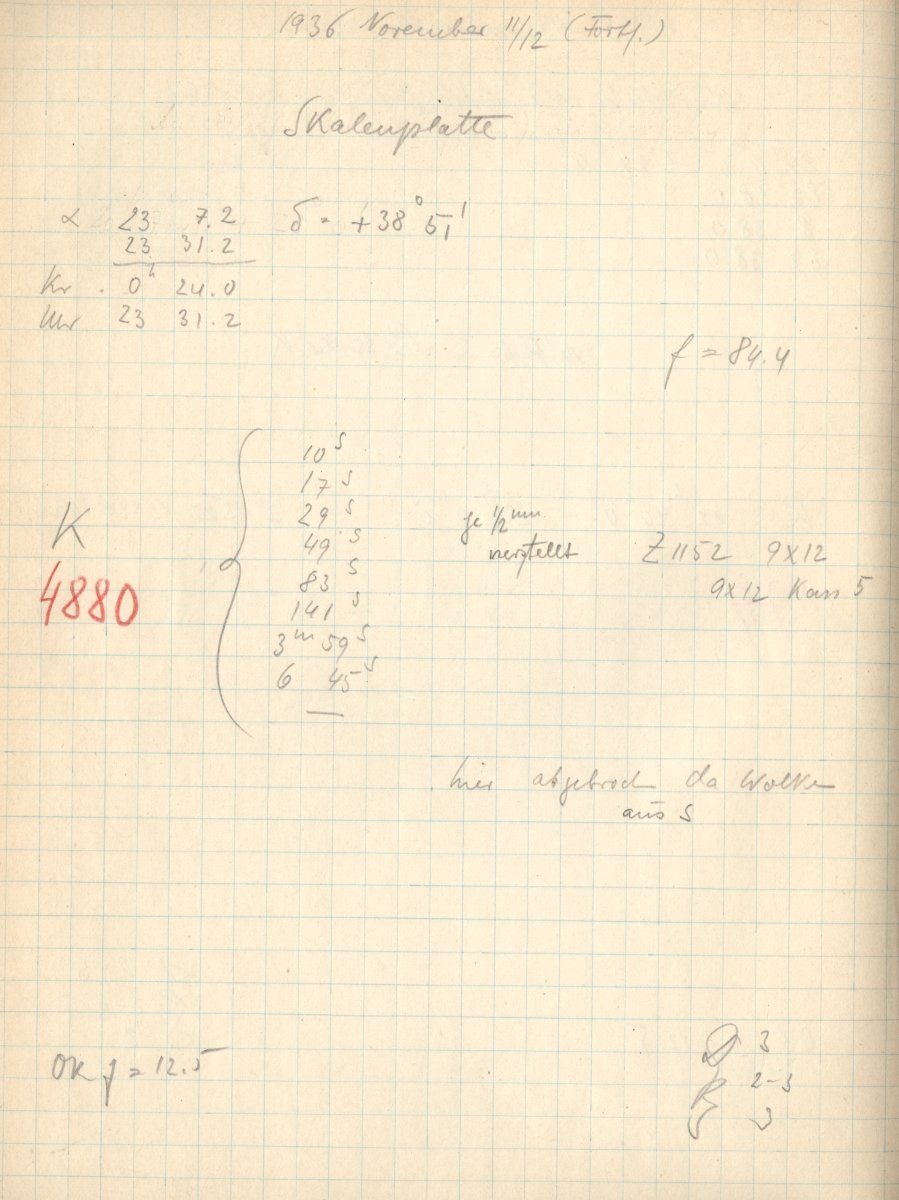 1936 November 11/12 (Fortf.)
Skalenplatte
α 23 7.2 δ = +38° 51'
23 31.2
Kr . 0ʰ 24.0
Uhr 23 31.2
f = 84.4
10ˢ
17ˢ
29ˢ
49ˢ
83ˢ
141ˢ
3ᵐ 59ˢ
6 45ˢ
K
4880
je 1/2 mm
verstellt
Z 1152 9x12
9x12 Kass 5
hier abgebroch da Wolken
aus S
OK f = 12.5
3
2-3
3